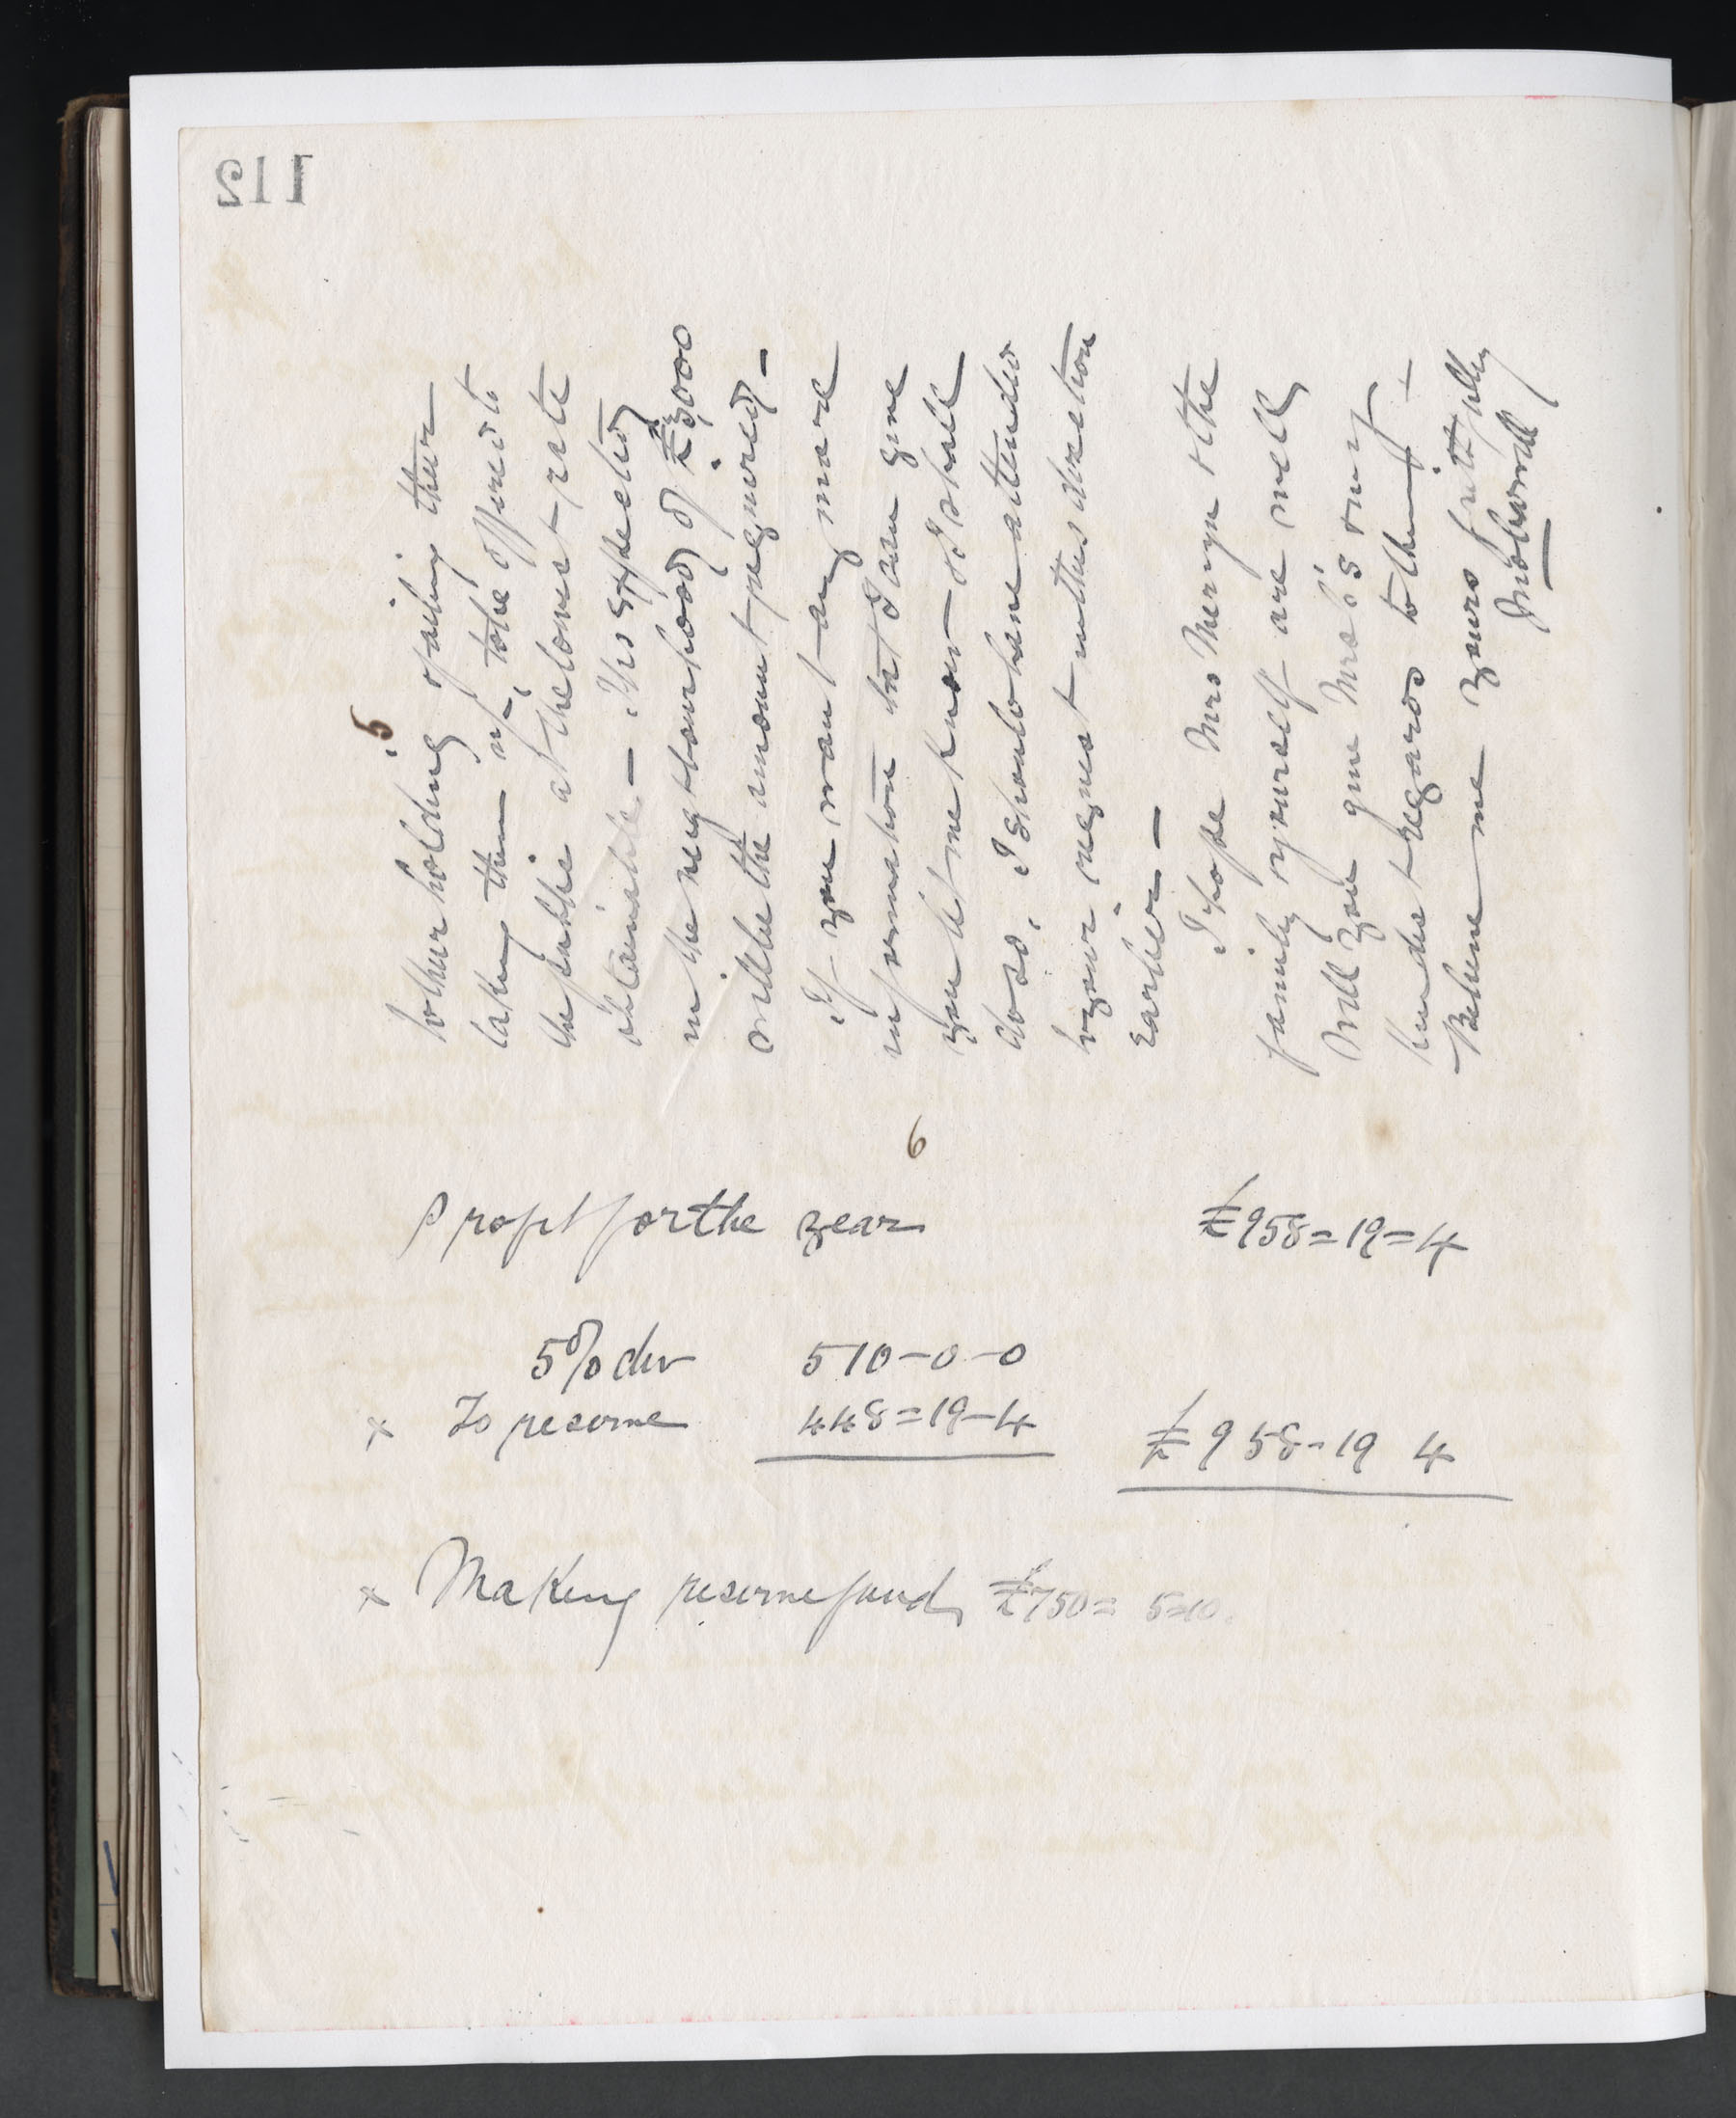 112
5
to their holding & failing their
taking them up, to be offered to
the public at the lowest rate
obtainable – It is expected
in the neighbourhood of £3,000
will be the amount required –
If you want any more
information that I can give
you let me know – & I shall
do so. I should have attended
to your request in this direction
earlier –
I hope Mrs Merwyn & the
family & yourself are well
Will you give Mrs 's & my
kindest regards to them –
Believe me yours faithfully
6
Profit for the year £958=19=4
5% div 510–0–0
x To reserve 448=19–4 £958–19 4
x Making reserve fund £750= 5=10.